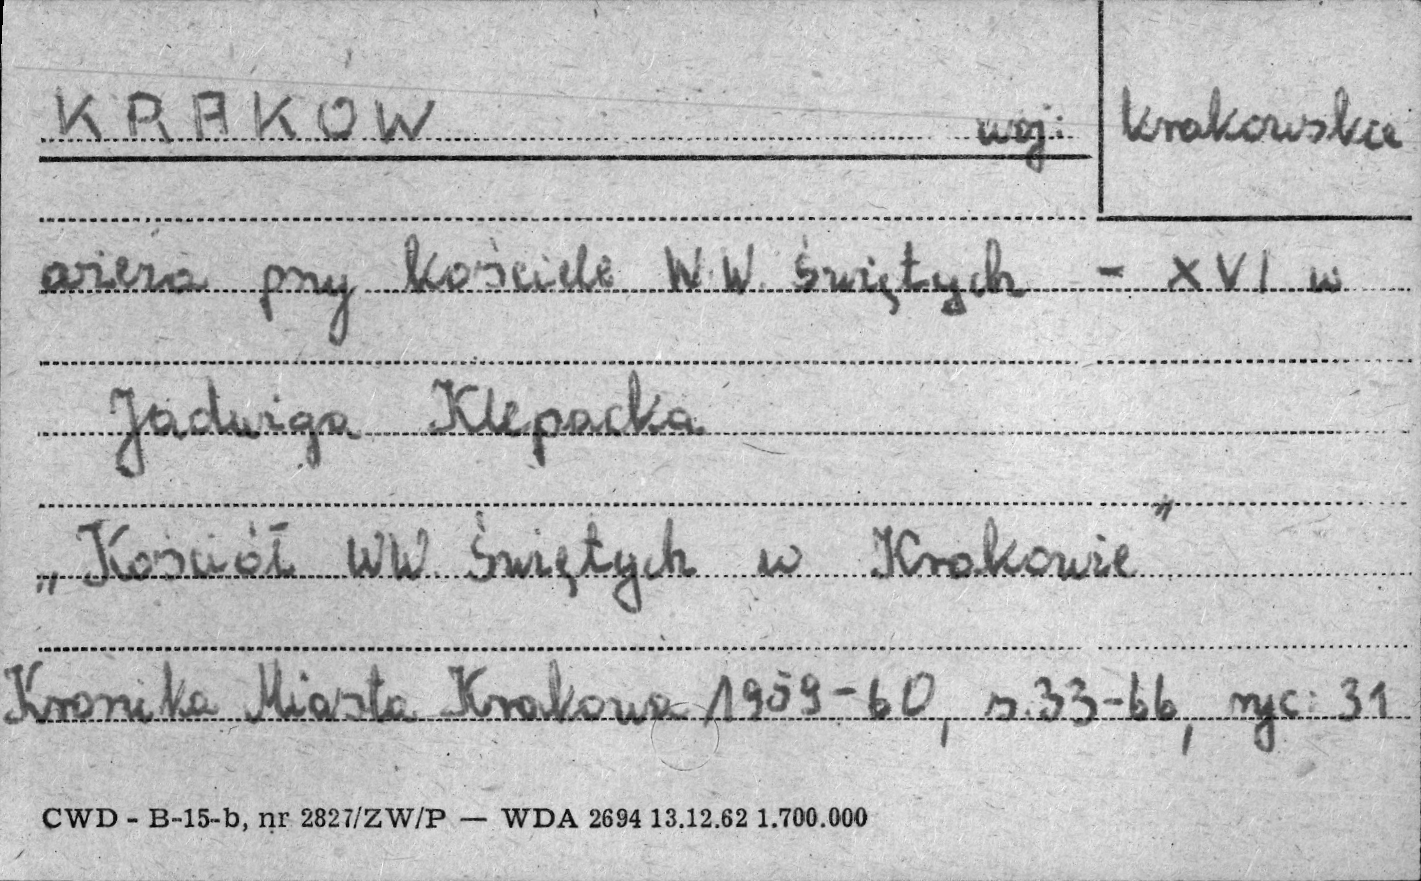 KRAKOW woj: krakowskie
wieża przy kościele W.W. Świętych - XVI w
Jadwiga Klepacka
„Kościół WW. Świętych w Krakowie"
Kronika Miasta Krakowa 1959-60, s.33-66, ryc: 31
CWD - B-15-b, nr 2827/ZW/P — WDA 2694 13.12.62 1.700.000